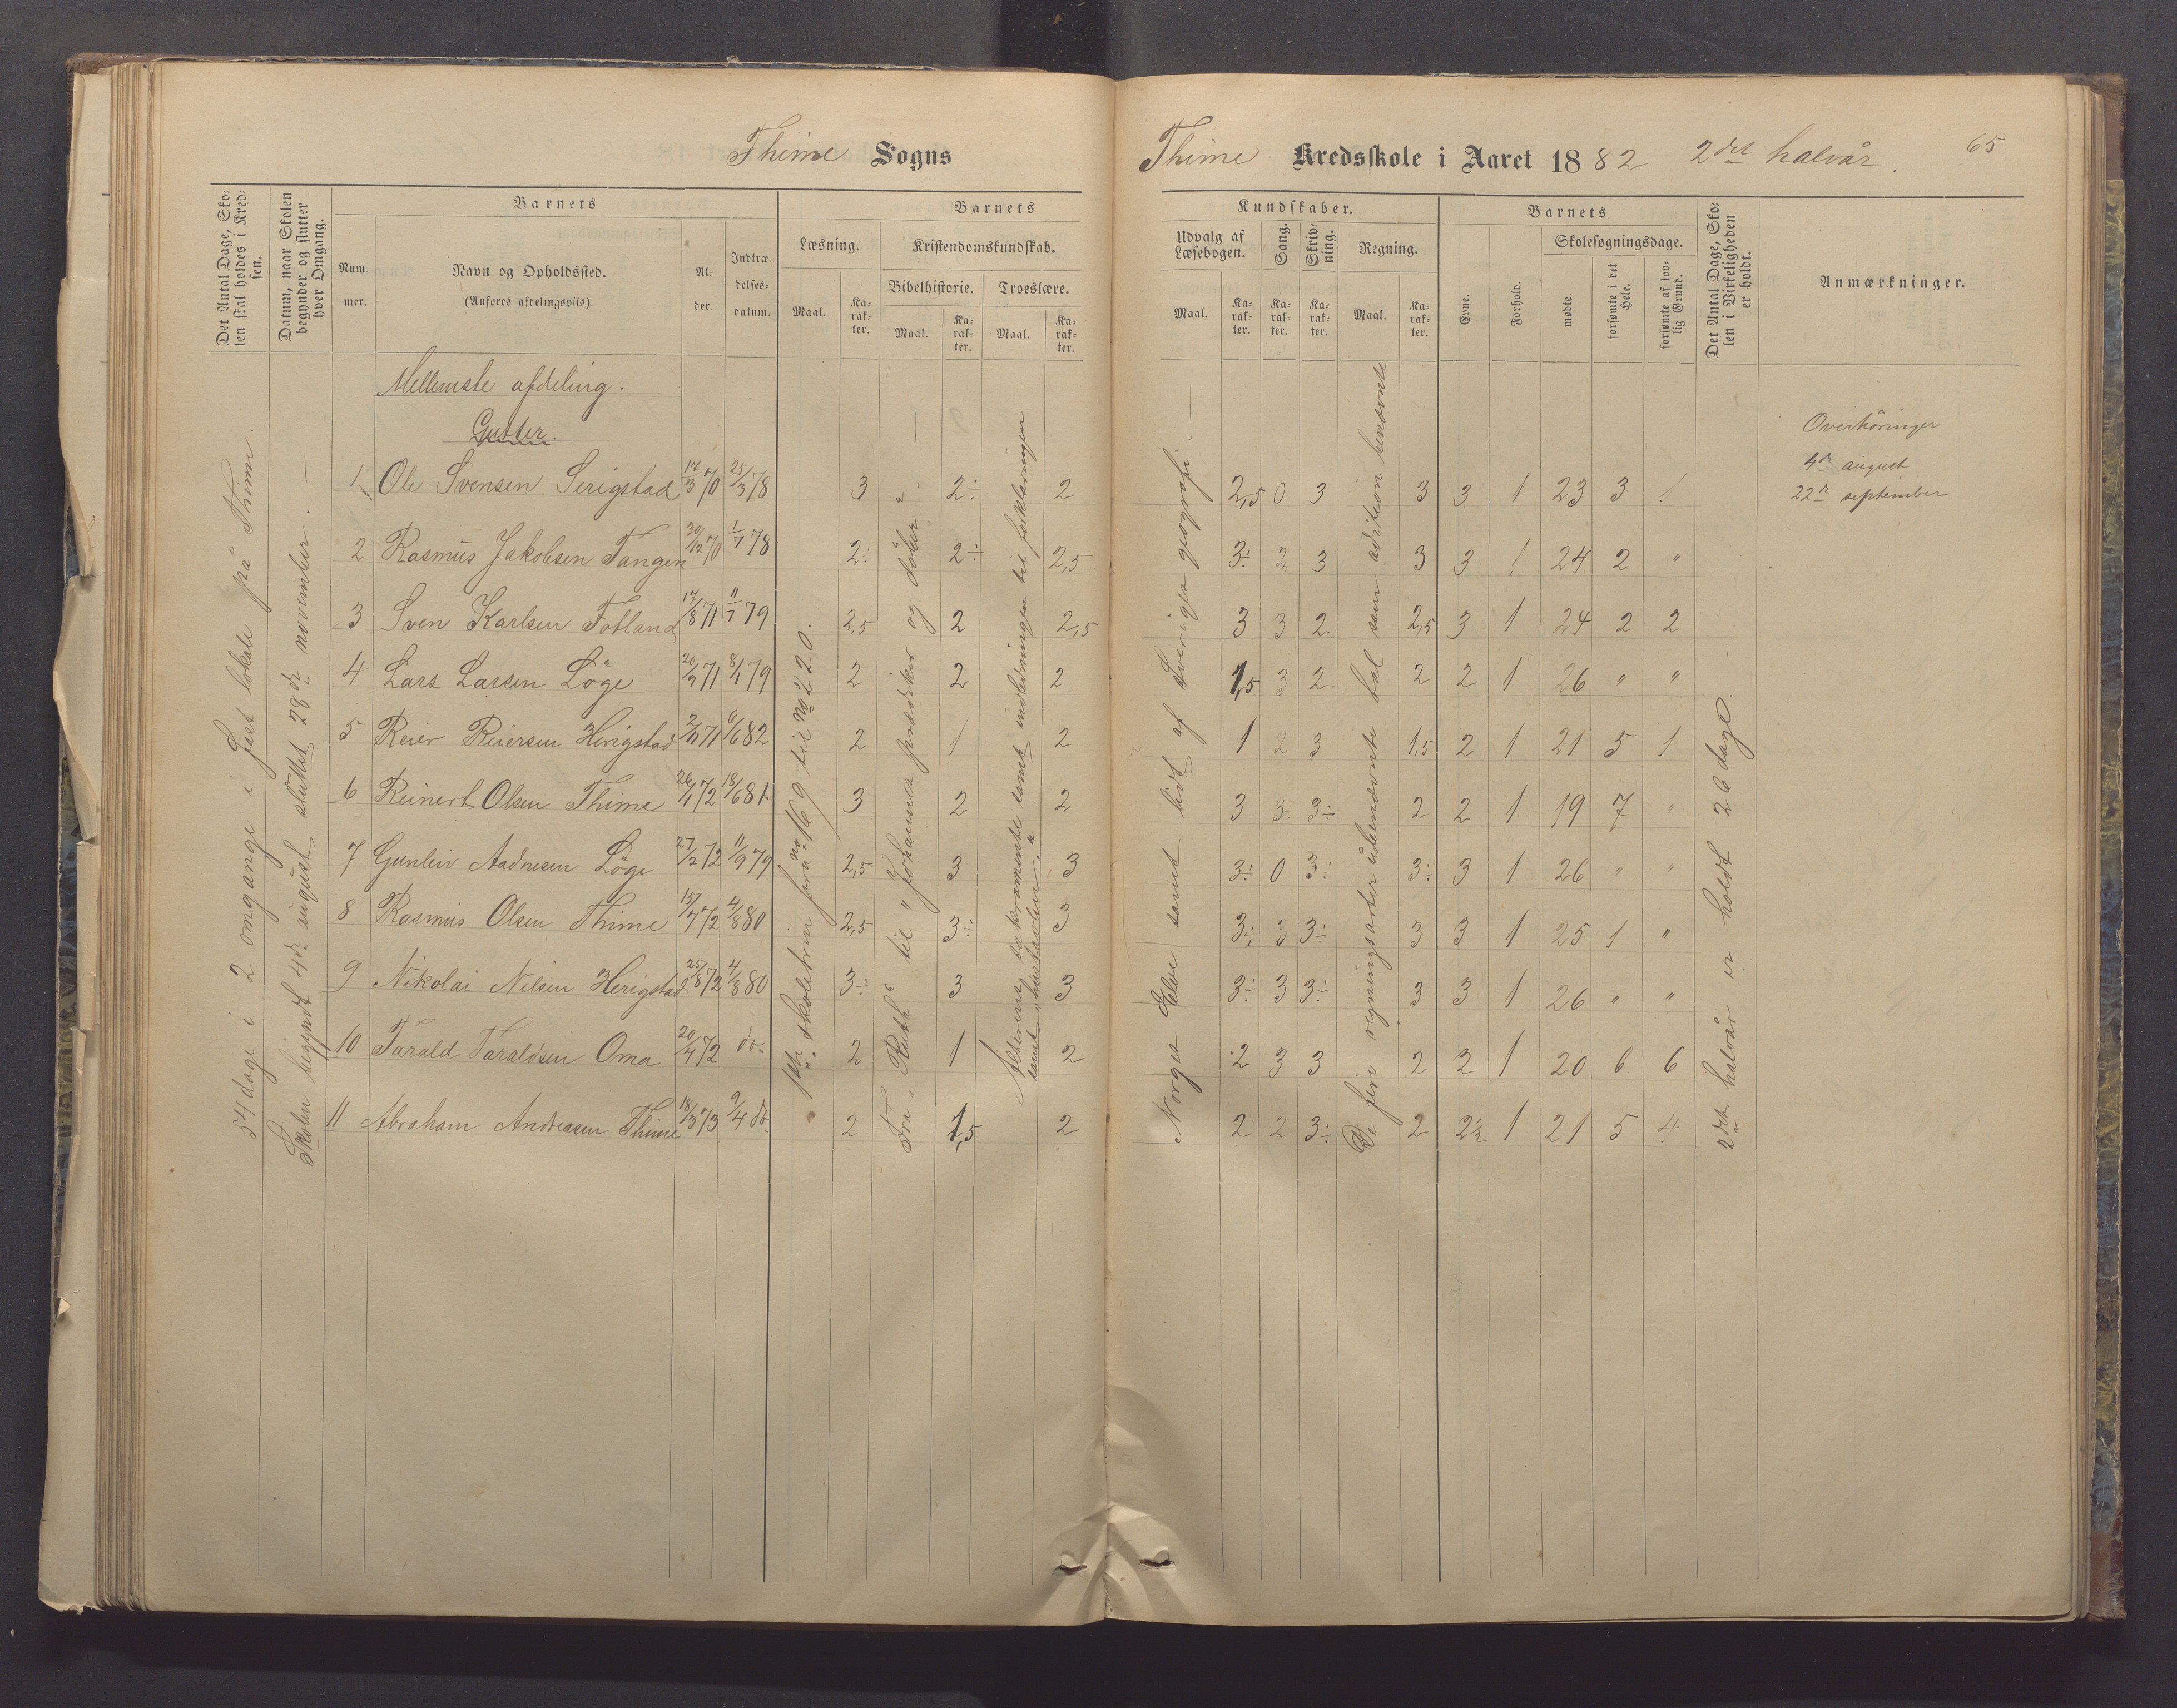 Thime Sogns
Thime Kredsskole i Aaret 1882 2det halvår.
65
Det Antal Dage, Skolen skal holdes i Kredsen.
Datum, naar Skolen begynder og slutter hver Omgang.
Barnets
Num-mer.
Navn og Opholdssted.
(Anføres afdelingsviis).
Al-der.
Indtræ-delses-datum.
Barnets
Læsning.
Maal.
Ka-rak-ter.
Kristendomskundskab.
Bibelhistorie.
Maal.
Ka-rak-ter.
Troeslære.
Maal.
Ka-rak-ter.
Kundskaber.
Udvalg af Læsebogen.
Maal.
Ka-rak-ter.
Sang.
Ka-rak-ter.
Skriv-ning.
Ka-rak-ter.
Regning.
Maal.
Ka-rak-ter.
Barnets
Evne.
Forhold.
Skolesøgningsdage.
mødte.
forsømte i det Hele.
forsømte af lov-lig Grund.
Det Antal Dage, Sko-len i Virkeligheden er holdt.
Anmærkninger.
54 dage i 2 omgange i fast lokale på Thime.
Skolen begyndt 4de august sluttet 28de november. —
Mellemste afdeling.
Gutter.
1 Ole Svensen Serigstad 17/3 70 25/3 78 3 2÷ 2 2,5 0 3 3 3 1 23 3 1
2 Rasmus Jakobsen Tangen 30/12 70 1/7 78 2÷ 2÷ 2,5 3÷ 2 3 3 3 1 24 2 "
3 Sven Karlsen Fotland 17/8 71 11/7 79 2,5 2 2,5 3 3 2 2,5 3 1 24 2 2
4 Lars Larsen Løge 20/9 71 8/1 79 2 2 2 1,5 3 2 2 2 1 26 " "
5 Reier Reiersen Herigstad 2/11 71 6/6 82 2 1 2 1 2 3 1,5 2 1 21 5 1
6 Reinert Olsen Thime 26/1 72 18/6 81 3 2 2 3 3 3÷ 2 2 1 19 7 "
7 Gunleiv Aadnesen Løge 27/2 72 11/9 79 2,5 3 3 3÷ 0 3÷ 3÷ 3 1 26 " "
8 Rasmus Olsen Thime 15/4 72 4/8 80 2,5 3÷ 3 3÷ 3 3÷ 3 3 1 25 1 "
9 Nikolai Nilsen Herigstad 25/8 72 4/8 80 3÷ 3 3 3÷ 3 3÷ 3 3 1 26 " "
10 Tarald Taraldsen Oma 20/4 72 do. 2 1 2 2 3 3 2 2 1 20 6 6
11 Abraham Andreasen Thime 18/3 73 9/4 do. 2 1,5 2 2 2 3÷ 2 2½ 1 21 5 4
1ste skoletrin fra no 169 til no 220.
Fra "Ruth" til "Johannes prædiker og døber".
Alterens sakramente samt indledningen til forklaringen
samt hustavlen.
Norges Elve samt lidt af Sveriges geografi.
De fire regningsarter i ubenævnte tal sam adition benævnte
2det halvår er holdt 26 dage.
Overhöringer
4de august
22de september